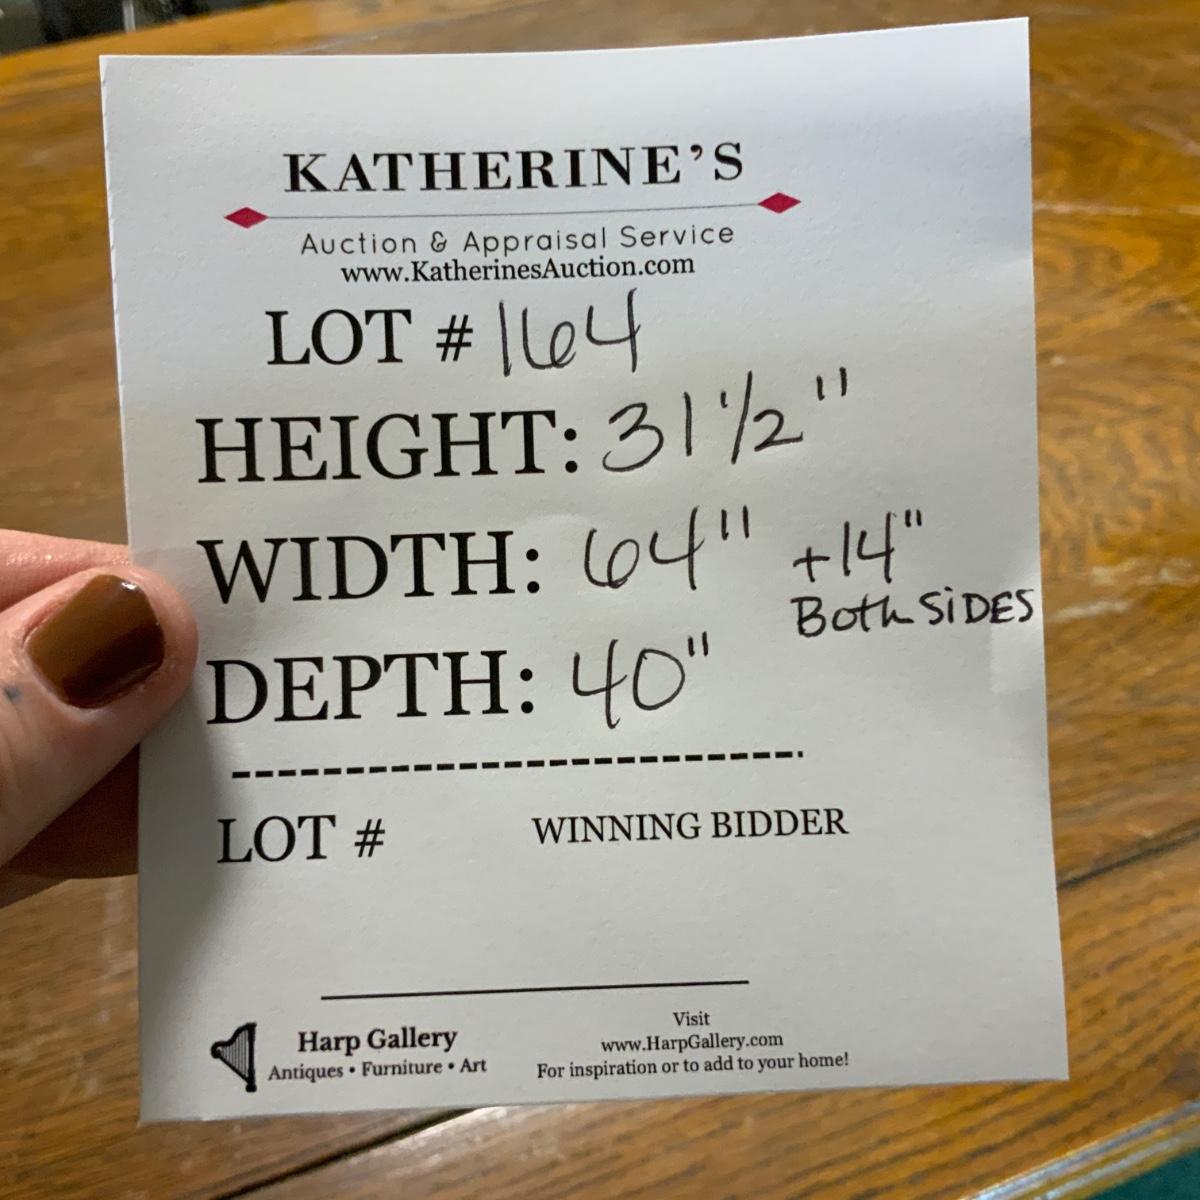 KATHERINE'S
Auction & Appraisal Service
www.KatherinesAuction.com
LOT # 164
HEIGHT: 31 1/2"
WIDTH: 64" +14"
Both SiDES
DEPTH: 40"
LOT # WINNING BIDDER
Harp Gallery
Antiques • Furniture • Art
Visit
www.HarpGallery.com
For inspiration or to add to your home!